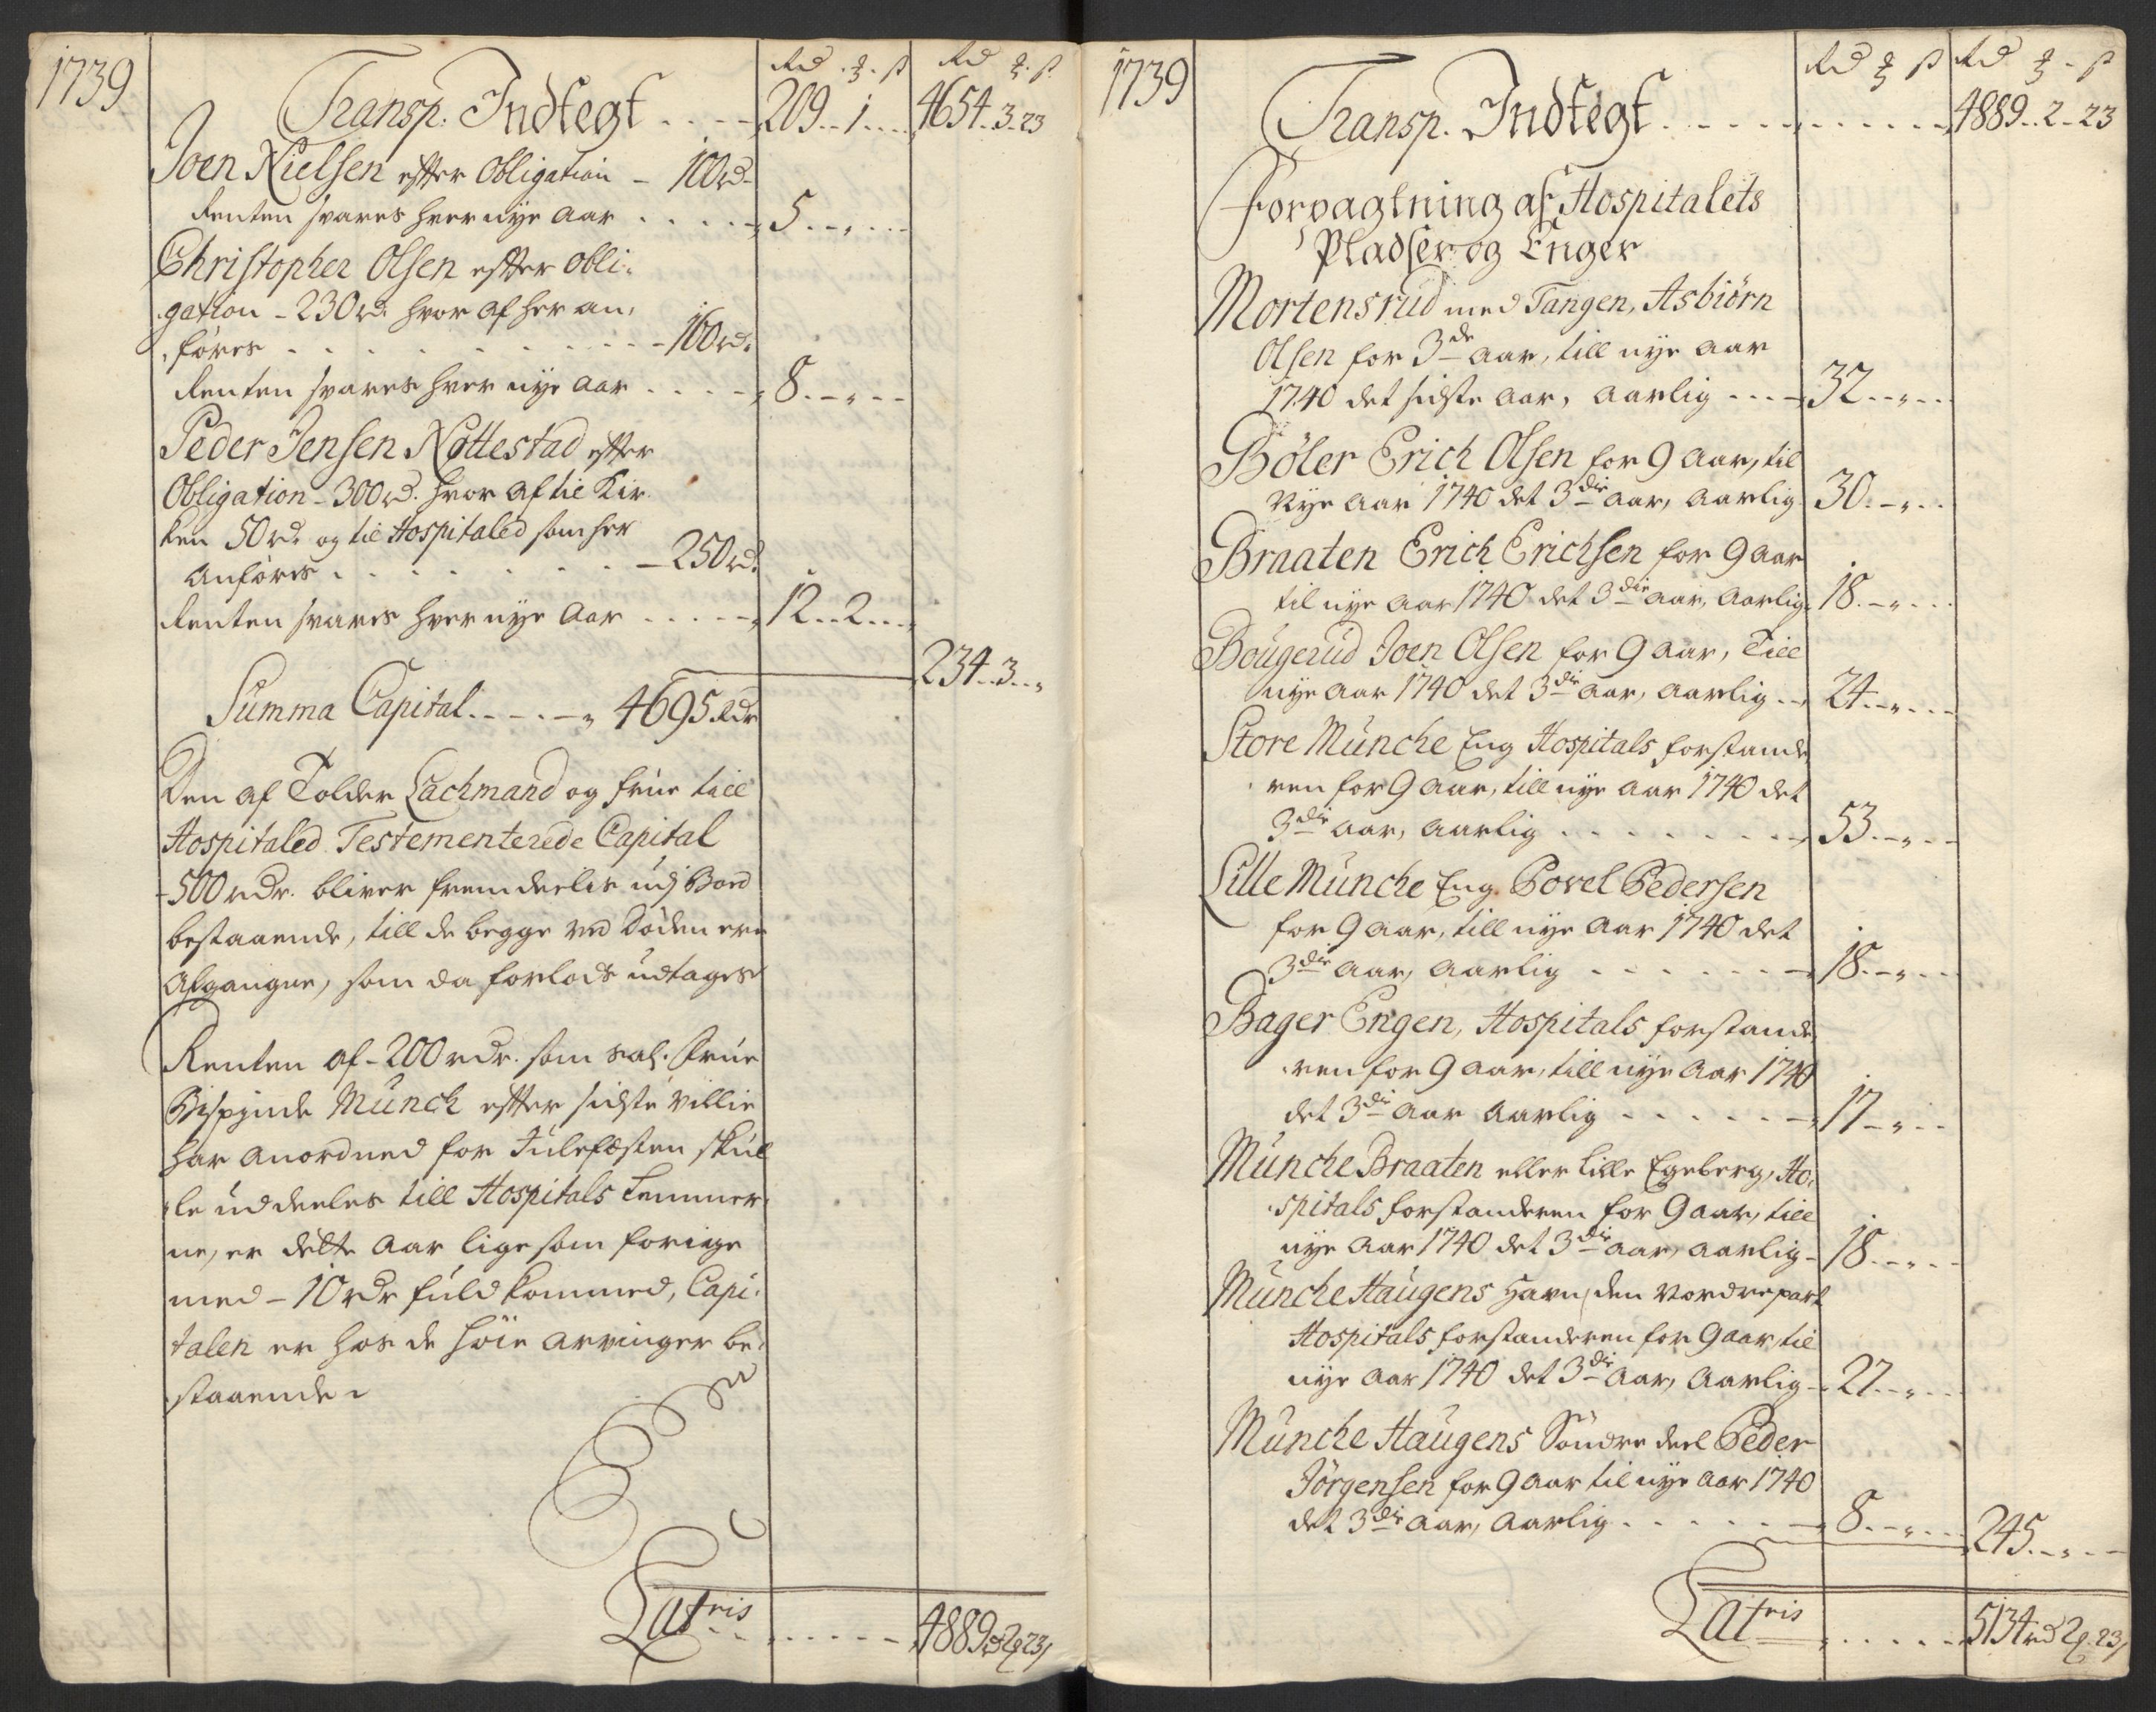 1739
Rd. ℥. ß Rd ℥. ß.
Transp. Indtegt .... 209..1.... 4654..3..23
Joen Nielsen efter Obligation – 100rd.
Renten svares hver nye Aar ..... 5..„...
Christopher Olsen efter Obli-
gation – 230rd. hvor af her an-
føres ........... – 160rd.
Renten svares hver nye Aar .... 8..„..
Peder Jensen Nøttestad efter
Obligation – 300rd. hvor af til Kir-
ken 50rd. og til Hospitaled som her
Anføres ....... – 250rd.
Renten svares hver nye Aar ..... 12..2...
234..3..„
Summa Capital..... 4695 Rdr
Den af Tolder Lachmand og Frue till
Hospitaled Testementerede Capital
– 500 rdr. bliver fremdeelis udj Boed
bestaaende, till de begge ved Døden ere
Afgangne, som da forlods udtages
Renten af – 200 rdr. som sal. Frue
Bispinde Munch efter sidste villie
har Anordned for Julefæsten skul-
le uddeeles till Hospitals Lemmer-
ne, er dette Aar lige som forige
med – 10 rdr fuldkommed, Capi-
talen er hos de høie Arvinger be-
staaende.
Latris ..... 4889rd 2℥ 23ß
1739
Rd ℥ ß Rd ℥ – ß
Transp. Indtegt ........... 4889..2..23
Forpagtning af Hospitalets
Pladser og Enger
Mortensrud med Tangen, Asbiørn
Olsen for 3de Aar, till nye Aar
1740 det sidste Aar, Aarlig .... 32..„..
Bøler Erich Olsen for 9 Aar, til
Nye Aar 1740 det 3die Aar, Aarlig 30..„..
Braaten Erich Erichsen for 9 Aar
til nye Aar 1740 det 3die Aar, Aarlig. 18..„...
Bougerud Joen Olsen for 9 Aar, Till
nye Aar 1740 det 3die Aar, Aarlig .. 24..„...
Store Munche Eng Hospitals forstande-
ren for 9 Aar, till nye Aar 1740 det
3die Aar, Aarlig ........ 53..„..
Lille Munche Eng. Povel Pedersen
for 9 Aar, till nye Aar 1740 det
3die Aar, Aarlig ...... 18..„..
Bager Engen, Hospitals forstande-
ren for 9 Aar, till nye Aar 1740
det 3die Aar Aarlig ...... 17..„..
Munche Braaten eller lille Egeberg, Ho-
spitals forstanderen for 9 Aar, till
nye Aar 1740 det 3die Aar, Aarlig – 18..„..
Munche Haugens Havn, den Nordre part
Hospitals forstanderen for 9 Aar, til
nye Aar 1740 det 3die Aar, Aarlig – 27..„..
Munche Haugens Søndre deel Peder
Jørgensen for 9 Aar til nye Aar 1740
det 3die Aar, Aarlig ...... 8..„.. 245..„..
Latris ...... 5134rd 2℥. 23ß